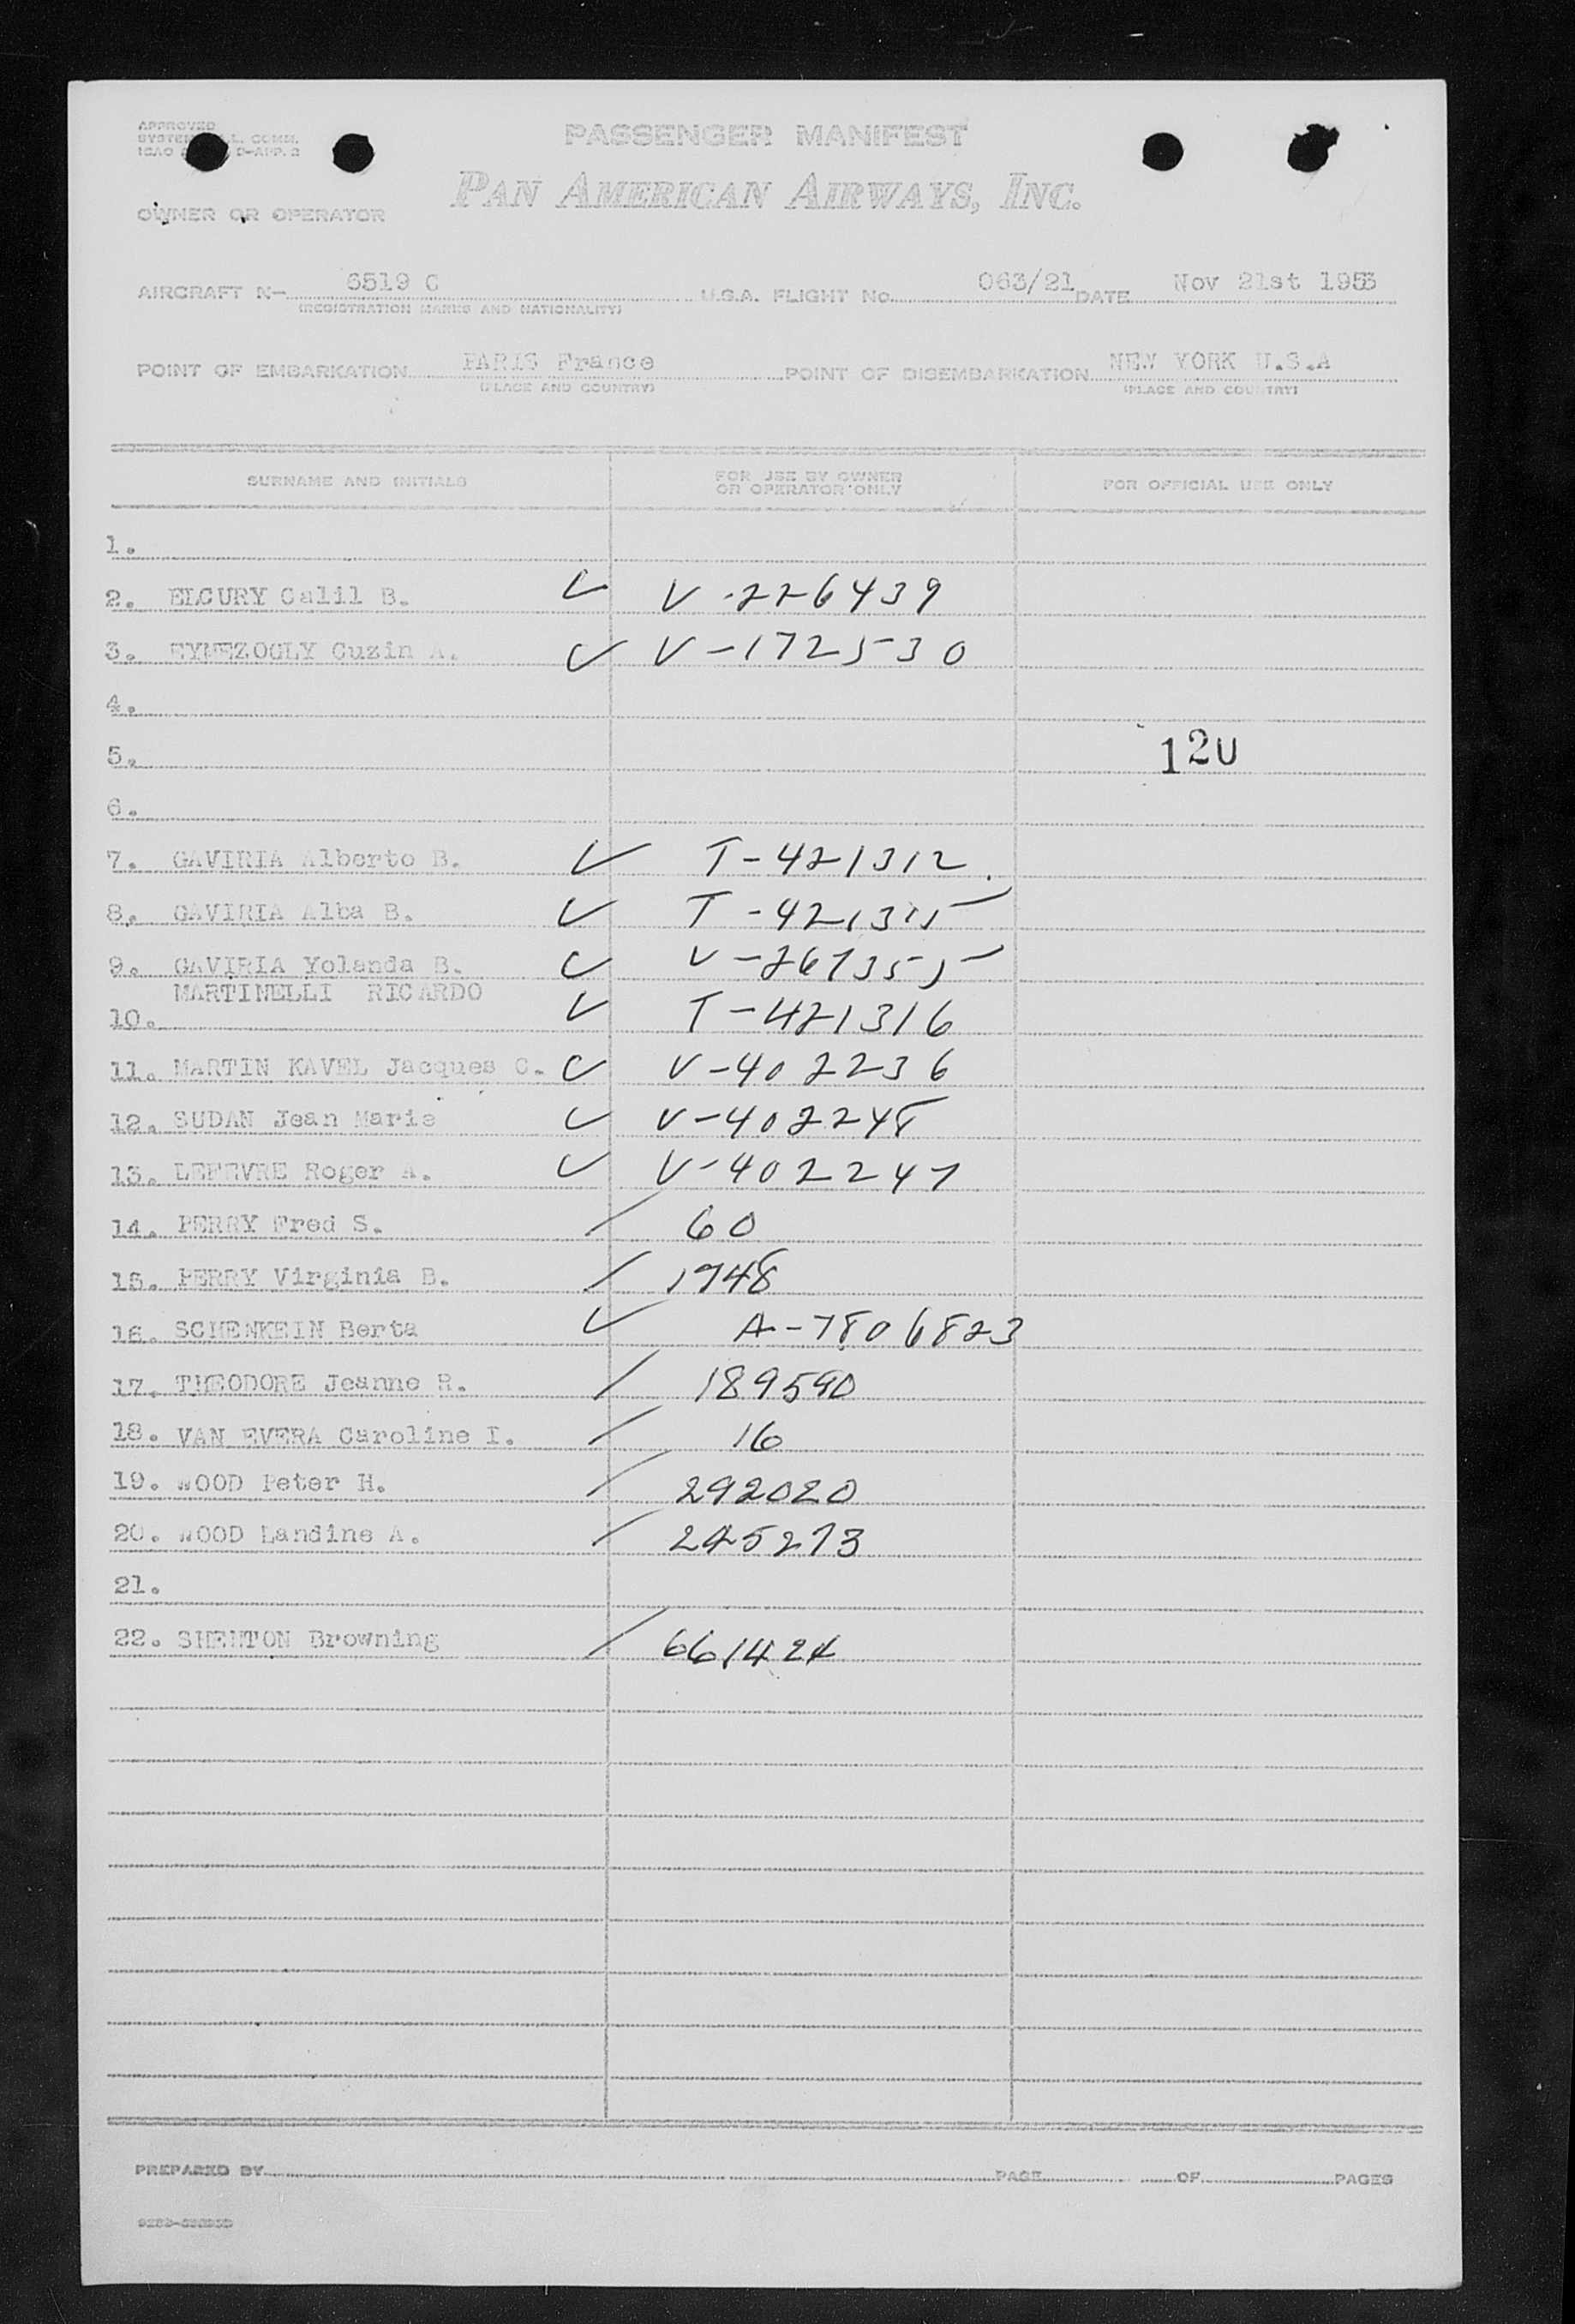 APPROVED
SYSTEM L. COMM.
ICAO D-APP. 2
PASSENGER MANIFEST
PAN AMERICAN AIRWAYS, INC.
OWNER OR OPERATOR
AIRCRAFT N- 6519 C U.S.A. FLIGHT No. 063/21 DATE Nov 21st 1953
(REGISTRATION MARKS AND NATIONALITY)
POINT OF EMBARKATION PARIS France POINT OF DISEMBARKATION NEW YORK U.S.A
(PLACE AND COUNTRY) (PLACE AND COUNTRY)
SURNAME AND INITIALS FOR USE BY OWNER OR OPERATOR ONLY FOR OFFICIAL USE ONLY
1.
2. ELCURY Calil B. V-226439
3. EYMEZOGLY Cuzin A. V-172530
4.
5. 120
6.
7. GAVIRIA Alberto B. T-421312
8. GAVIRIA Alba B. T-421315
9. GAVIRIA Yolanda B. V-267355
MARTINELLI RICARDO
10. T-421316
11. MARTIN KAVEL Jacques C. V-402236
12. SUDAN Jean Marie V-402248
13. LEFEVRE Roger A. V-402247
14. PERRY Fred S. 60
15. PERRY Virginia B. 1748
16. SCHENKEIN Berta A-7806823
17. THEODORE Jeanne R. 189590
18. VAN EVERA Caroline I. 16
19. WOOD Peter H. 292020
20. WOOD Landine A. 245273
21.
22. SHENTON Browning 661424
PREPARED BY PAGE OF PAGES